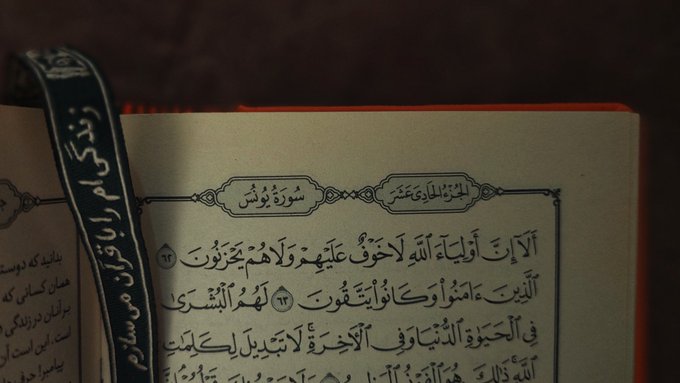 زندگی‌ام را با قرآن می‌سازم
الجُزْءُ الحَادِى عَشَرَ
سُورَةُ يُونُسَ
أَلَآ إِنَّ أَوْلِيَآءَ ٱللَّهِ لَا خَوْفٌ عَلَيْهِمْ وَلَا هُمْ يَحْزَنُونَ ٦٢
ٱلَّذِينَ ءَامَنُوا۟ وَكَانُوا۟ يَتَّقُونَ ٦٣ لَهُمُ ٱلْبُشْرَىٰ
فِى ٱلْحَيَوٰةِ ٱلدُّنْيَا وَفِى ٱلْـَٔاخِرَةِ ۚ لَا تَبْدِيلَ لِكَلِمَٰتِ
ٱللَّهِ ۚ ذَٰلِكَ هُوَ ٱلْفَوْزُ
بدانید که دوستا
همان کسانی که
بر آنان در زندگی د
است، این است آن